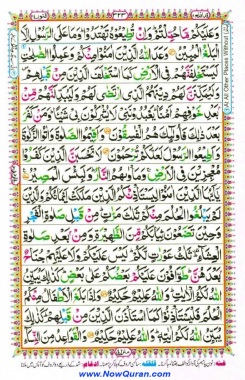 وَعَلَيْكُمْ مَّا حُمِّلْتُمْ وَاِنْ تُطِيْعُوْهُ تَهْتَدُوْا وَمَا عَلَى الرَّسُوْلِ اِلَّا
الْبَلٰغُ الْمُبِيْنُ وَعَدَ اللّٰهُ الَّذِيْنَ اٰمَنُوْا مِنْكُمْ وَعَمِلُوا الصّٰلِحٰتِ
لَيَسْتَخْلِفَنَّهُمْ فِي الْاَرْضِ كَمَا اسْتَخْلَفَ الَّذِيْنَ مِنْ قَبْلِهِمْ
وَلَيُمَكِّنَنَّ لَهُمْ دِيْنَهُمُ الَّذِي ارْتَضٰى لَهُمْ وَلَيُبَدِّلَنَّهُمْ مِّنْ
بَعْدِ خَوْفِهِمْ اَمْنًا يَعْبُدُوْنَنِيْ لَا يُشْرِكُوْنَ بِيْ شَيْئًا وَمَنْ كَفَرَ
بَعْدَ ذٰلِكَ فَاُولٰٓئِكَ هُمُ الْفٰسِقُوْنَ وَاَقِيْمُوا الصَّلٰوةَ وَاٰتُوا الزَّكٰوةَ
وَاَطِيْعُوا الرَّسُوْلَ لَعَلَّكُمْ تُرْحَمُوْنَ لَا تَحْسَبَنَّ الَّذِيْنَ كَفَرُوْا
مُعْجِزِيْنَ فِي الْاَرْضِ وَمَاْوٰىهُمُ النَّارُ وَلَبِئْسَ الْمَصِيْرُ
يٰٓاَيُّهَا الَّذِيْنَ اٰمَنُوْا لِيَسْتَاْذِنْكُمُ الَّذِيْنَ مَلَكَتْ اَيْمَانُكُمْ وَالَّذِيْنَ
لَمْ يَبْلُغُوا الْحُلُمَ مِنْكُمْ ثَلٰثَ مَرّٰتٍ مِنْ قَبْلِ صَلٰوةِ الْفَجْرِ
وَحِيْنَ تَضَعُوْنَ ثِيَابَكُمْ مِّنَ الظَّهِيْرَةِ وَمِنْ بَعْدِ صَلٰوةِ
الْعِشَآءِ ثَلٰثُ عَوْرٰتٍ لَّكُمْ لَيْسَ عَلَيْكُمْ وَلَا عَلَيْهِمْ جُنَاحٌ
بَعْدَهُنَّ طَوّٰفُوْنَ عَلَيْكُمْ بَعْضُكُمْ عَلٰى بَعْضٍ كَذٰلِكَ يُبَيِّنُ
اللّٰهُ لَكُمُ الْاٰيٰتِ وَاللّٰهُ عَلِيْمٌ حَكِيْمٌ وَاِذَا بَلَغَ الْاَطْفَالُ مِنْكُمُ
الْحُلُمَ فَلْيَسْتَاْذِنُوْا كَمَا اسْتَاْذَنَ الَّذِيْنَ مِنْ قَبْلِهِمْ كَذٰلِكَ
يُبَيِّنُ اللّٰهُ لَكُمْ اٰيٰتِهٖ وَاللّٰهُ عَلِيْمٌ حَكِيْمٌ وَالْقَوَاعِدُ مِنَ النِّسَآءِ
www.NowQuran.com